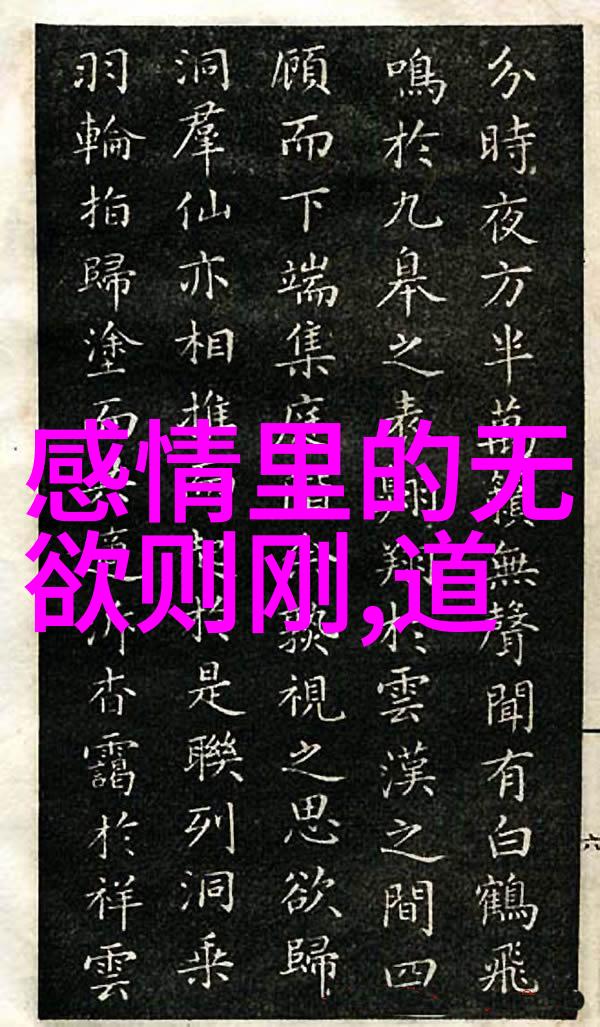 感情里的无
欲则刚,道
分時夜方半萬籟無聲聞有白鶴飛
鳴於九皋之表翱翔於雲漢之間四
顧而下端集庭視之思欲歸
洞羣仙亦相推而於是聯列洞乘
羽輪指歸塗而杳靄於祥雲
六